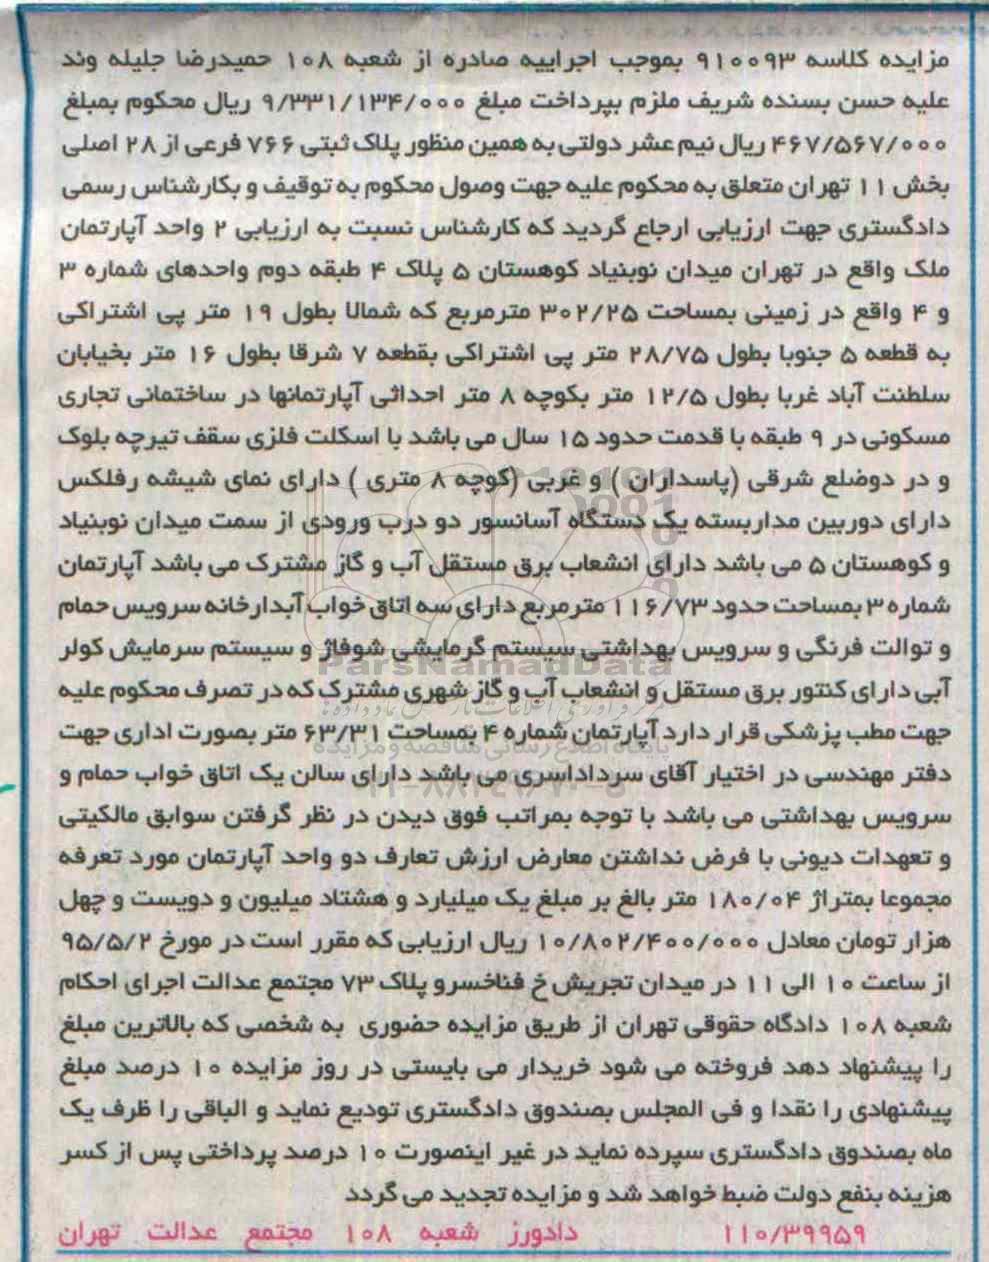 مزایده کلاسه ۹۱۰۰۹۳ بموجب اجراییه صادره از شعبه ۱۰۸ حمیدرضا جلیله وند
علیه حسن بسنده شریف ملزم بپرداخت مبلغ ۹/۳۳۱/۱۳۴/۰۰۰ ریال محکوم بمبلغ
۴۶۷/۵۶۷/۰۰۰ ریال نیم عشر دولتی به همین منظور پلاک ثبتی ۷۶۶ فرعی از ۲۸ اصلی
بخش ۱۱ تهران متعلق به محکوم علیه جهت وصول محکوم به توقیف و بکارشناس رسمی
دادگستری جهت ارزیابی ارجاع گردید که کارشناس نسبت به ارزیابی ۲ واحد آپارتمان
ملک واقع در تهران میدان نوبنیاد کوهستان ۵ پلاک ۴ طبقه دوم واحدهای شماره ۳
و ۴ واقع در زمینی بمساحت ۳۰۲/۲۵ مترمربع که شمالا بطول ۱۹ متر پی اشتراکی
به قطعه ۵ جنوبا بطول ۲۸/۷۵ متر پی اشتراکی بقطعه ۷ شرقا بطول ۱۶ متر بخیابان
سلطنت آباد غربا بطول ۱۲/۵ متر بکوچه ۸ متر احداثی آپارتمانها در ساختمانی تجاری
مسکونی در ۹ طبقه با قدمت حدود ۱۵ سال می باشد با اسکلت فلزی سقف تیرچه بلوک
و در دوضلع شرقی (پاسداران ) و غربی (کوچه ۸ متری ) دارای نمای شیشه رفلکس
دارای دوربین مداربسته یک دستگاه آسانسور دو درب ورودی از سمت میدان نوبنیاد
و کوهستان ۵ می باشد دارای انشعاب برق مستقل آب و گاز مشترک می باشد آپارتمان
شماره ۳ بمساحت حدود ۱۱۶/۷۳ مترمربع دارای سه اتاق خواب آبدارخانه سرویس حمام
و توالت فرنگی و سرویس بهداشتی سیستم گرمایشی شوفاژ و سیستم سرمایش کولر
ParsNamadData
آبی دارای کنتور برق مستقل و انشعاب آب و گاز شهری مشترک که در تصرف محکوم علیه
جهت مطب پزشکی قرار دارد آپارتمان شماره ۴ بمساحت ۶۳/۳۱ متر بصورت اداری جهت
پایگاه اطلاع رسانی مناقصه و مزایده
دفتر مهندسی در اختیار آقای سرداداسری می باشد دارای سالن یک اتاق خواب حمام و
سرویس بهداشتی می باشد با توجه بمراتب فوق دیدن در نظر گرفتن سوابق مالکیتی
و تعهدات دیونی با فرض نداشتن معارض ارزش تعارف دو واحد آپارتمان مورد تعرفه
مجموعا بمتراژ ۱۸۰/۰۴ متر بالغ بر مبلغ یک میلیارد و هشتاد میلیون و دویست و چهل
هزار تومان معادل ۱۰/۸۰۲/۴۰۰/۰۰۰ ریال ارزیابی که مقرر است در مورخ ۹۵/۵/۲
از ساعت ۱۰ الی ۱۱ در میدان تجریش خ فناخسرو پلاک ۷۳ مجتمع عدالت اجرای احکام
شعبه ۱۰۸ دادگاه حقوقی تهران از طریق مزایده حضوری به شخصی که بالاترین مبلغ
را پیشنهاد دهد فروخته می شود خریدار می بایستی در روز مزایده ۱۰ درصد مبلغ
پیشنهادی را نقدا و فی المجلس بصندوق دادگستری تودیع نماید و الباقی را ظرف یک
ماه بصندوق دادگستری سپرده نماید در غیر اینصورت ۱۰ درصد پرداختی پس از کسر
هزینه بنفع دولت ضبط خواهد شد و مزایده تجدید می گردد
۱۱۰/۳۹۹۵۹ دادورز شعبه ۱۰۸ مجتمع عدالت تهران